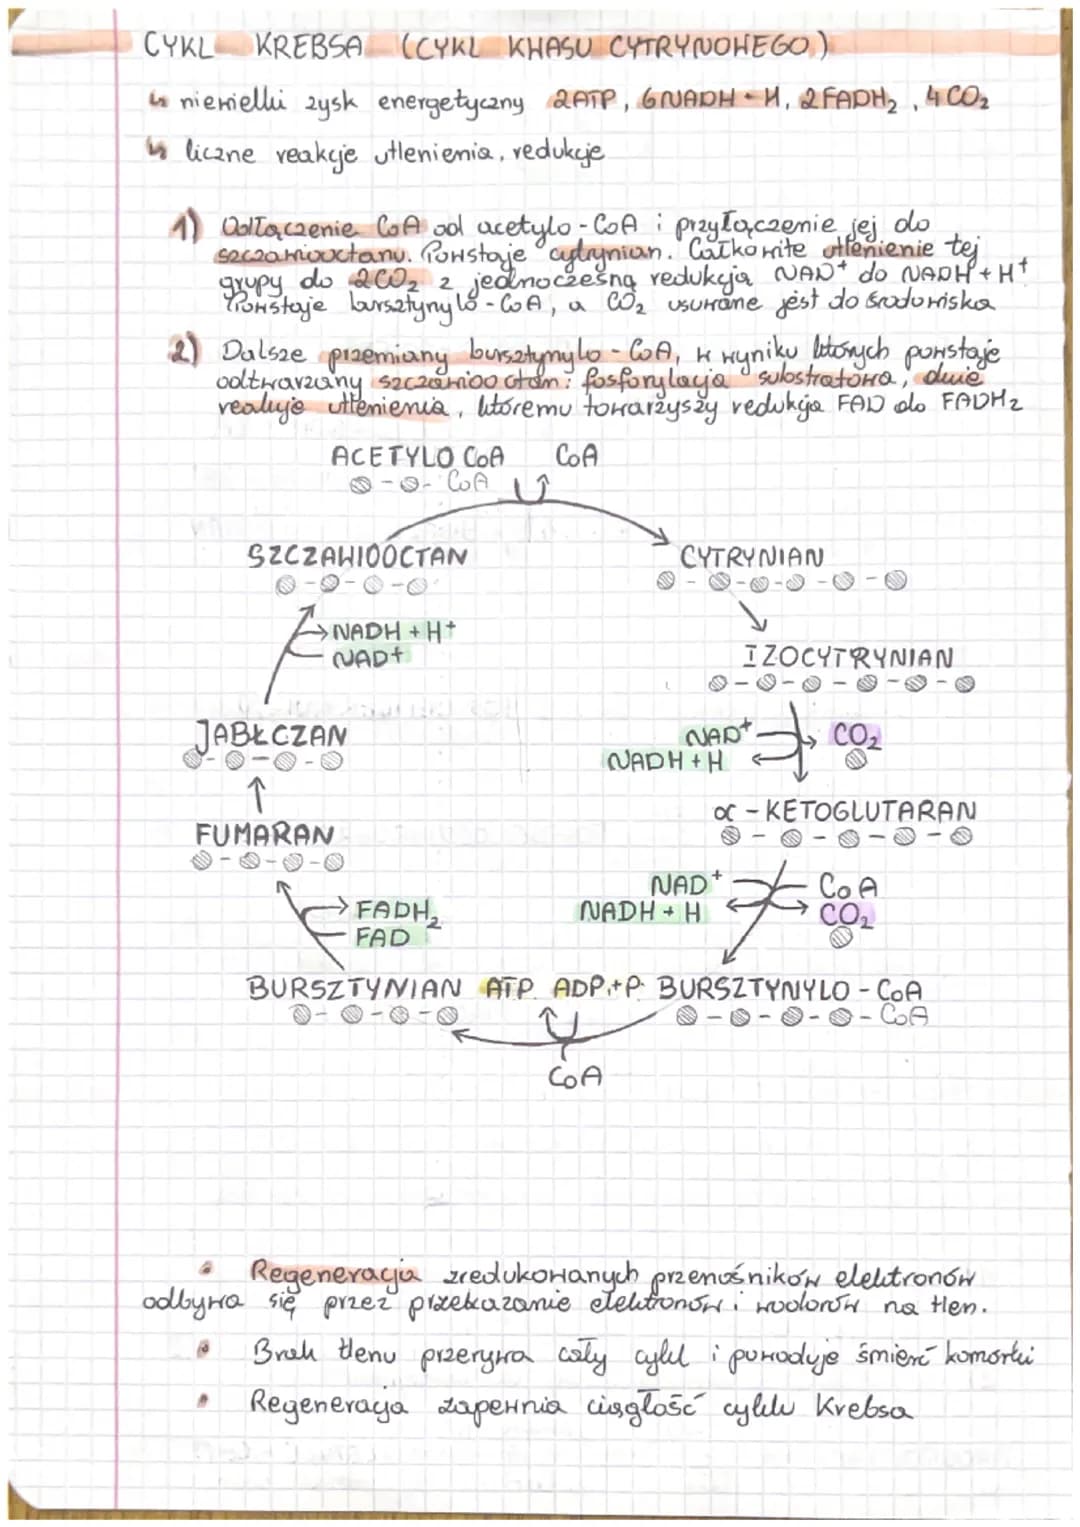 CYKL KREBSA (CYKL KWASU CYTRYNOWEGO)
↳ niewielki zysk energetyczny 2ATP, 6NADH + H, 2FADH₂, 4CO₂
↳ liczne reakcje utlenienia, redukcje
1) Odłączenie CoA od acetylo-CoA i przyłączenie jej do
szczawiooctanu. Powstaje cytrynian. Całkowite utlenienie tej
grupy do 2CO₂ z jednoczesną redukcją NAD⁺ do NADH + H⁺
Powstaje bursztynylo-CoA, a CO₂ usuwane jest do środowiska
2) Dalsze przemiany bursztynylo-CoA, w wyniku których powstaje
odtwarzany szczawiooctan: fosforylacja substratowa, dwie
reakcje utlenienia, któremu towarzyszy redukcja FAD do FADH₂
ACETYLO CoA CoA
- - CoA
SZCZAWIOOCTAN CYTRYNIAN
NADH + H⁺
NAD+
IZOCYTRYNIAN
JABŁCZAN NAD⁺ CO₂
NADH + H
α - KETOGLUTARAN
FUMARAN
NAD⁺ CoA
FADH₂ NADH + H CO₂
FAD
BURSZTYNIAN ATP ADP+P BURSZTYNYLO - CoA
- CoA
CoA
• Regeneracja zredukowanych przenośników elektronów
odbywa się przez przekazanie elektronów i wodorów na tlen.
• Brak tlenu przerywa cały cykl i powoduje śmierć komórki
• Regeneracja zapewnia ciągłość cyklu Krebsa